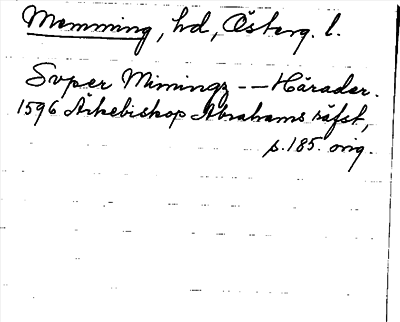 Memming, hd, Österg. l.
Svper Mimingz -- Härader.
1596 Ärkebiskop Abrahams räfst,
p. 185. orig.